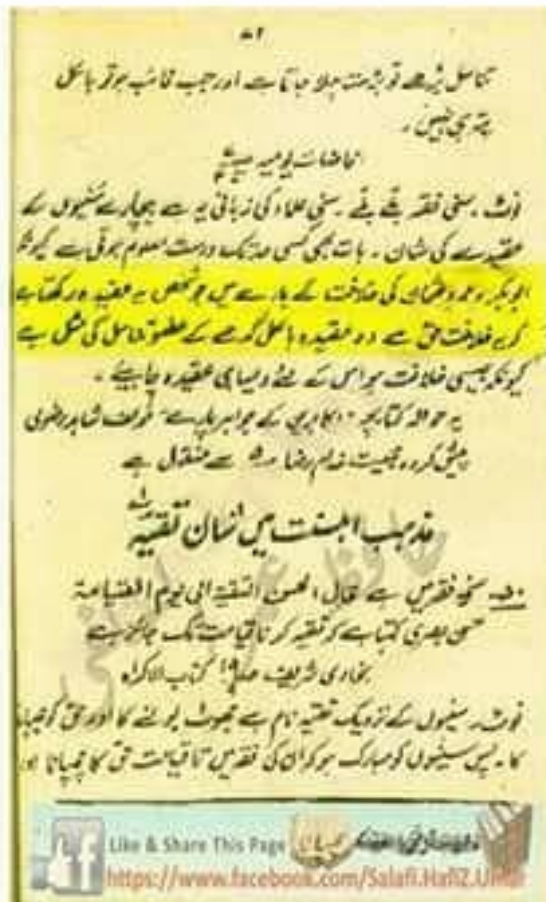 ۷۲
تناسل بڑھے تو بڑھتا چلا جاتا ہے اور جب غائب ہو تو بالکل
پتہ ہی نہیں۔
افاضات یومیہ
نوٹ۔ سنی فقہ بلے بلے۔ سنی علماء کی زبانی یہ ہے بیچارے سنیوں کے
عقیدے کی شان۔ بات بھی کسی حد تک درست معلوم ہوتی ہے کیونکہ
ابوبکر و عمر و عثمان کی خلافت کے بارے میں جو شخص یہ عقیدہ رکھتا ہے
کہ یہ خلافت حق ہے وہ عقیدہ بالکل گدھے کے عضو تناسل کی مثل ہے
کیونکہ جیسی خلافت ہو اس کے لئے ویسا ہی عقیدہ چاہیے۔
یہ حوالہ کتابچہ کے جواہر پارے مؤلف شاہد رضوی
پیش کردہ جمعیت خدام رضا سے منقول ہے
مذہب اہلسنت میں شان تقیہ
سنی فقہ میں ہے قال الحسن التقیة الی یوم القیامة
حسن بصری کہتا ہے کہ تقیہ کرنا قیامت تک جائز ہے
بخاری شریف کتاب الاکراہ
نوٹ۔ سنیوں کے نزدیک تقیہ نام ہے جھوٹ بولنے کا اور حق کو چھپانے
کا۔ پس سنیوں کو مبارک ہو کہ ان کی فقہ میں تا قیامت حق کا چھپانا
Like & Share This Page
https://www.facebook.com/Salafi.HafiZ.Umar